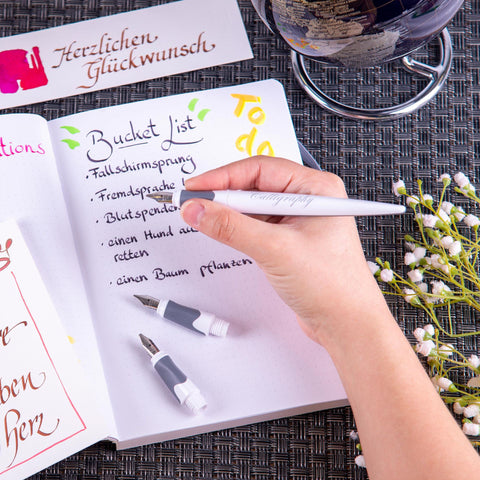 Herzlichen
Glückwunsch
Bucket List
To
do
• Fallschirmsprung
• Fremdsprache
• Blutspende
• einen Hund
retten
• einen Baum pflanzen
Calligraphy